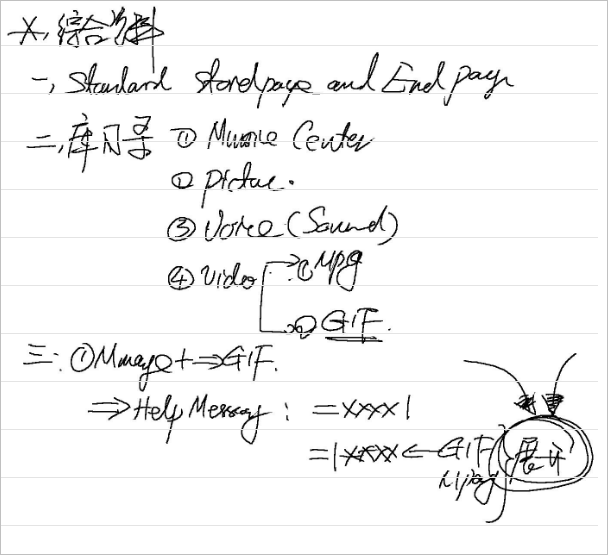 综合资料
一, Standard and End page
二, 库目录 ① Center
② Picture.
③ Voice (Sound)
④ Video ① Mpg
② GIF.
三: ① + ⇒ GIF.
⇒ Help Message: = xxxx |
= | xxxx ← GIF 展开